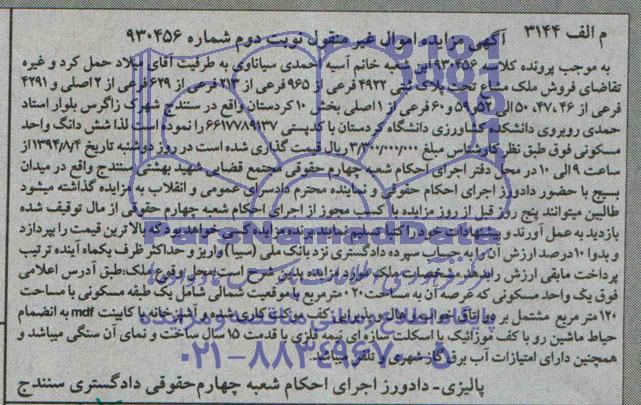 م الف ۳۱۴۴
آگهی مزایده اموال غیر منقول نوبت دوم شماره ۹۳۰۴۵۶
به موجب پرونده کلاسه ۹۳۰۴۵۶ این شعبه خانم آسیه احمدی سیاناوی به طرفیت آقای میلاد حمل کرد و غیره
تقاضای فروش ملک مشاع تحت پلاک ثبتی ۴۹۲۲ فرعی از ۹۶۵ فرعی از ۲۱۳ فرعی از ۶۲۹ فرعی از ۲ اصلی و ۴۲۹۱
فرعی از ۴۶، ۴۷، ۵۰ الی ۵۲، ۵۹ و ۶۰ فرعی از ۱ اصلی بخش ۱۰ کردستان واقع در سنندج شهرک زاگرس بلوار استاد
حمدی روبروی دانشکده کشاورزی دانشگاه کردستان با کدپستی ۶۶۱۷۷۸۹۱۳۷ را نموده است لذا شش دانگ واحد
مسکونی فوق طبق نظر کارشناس مبلغ ریال قیمت گذاری شده است در روز دوشنبه تاریخ ۱۳۹۴/۸/۴ از
ساعت ۹ الی ۱۰ در محل دفتر اجرای احکام شعبه چهارم حقوقی مجتمع قضایی شهید بهشتی سنندج واقع در میدان
بسیج با حضور دادورز اجرای احکام حقوقی و نماینده محترم دادسرای عمومی و انقلاب به مزایده گذاشته میشود
طالبین میتوانند پنج روز قبل از روز مزایده با کسب مجوز از اجرای احکام شعبه چهارم حقوقی از مال توقیف شده
بازدید به عمل آورند و پیشنهادات خود را کتبا تسلیم نمایند برنده مزایده کسی خواهد بود که بالاترین قیمت را بپردازد
و بدوا ۱۰ درصد ارزش آن را به حساب سپرده دادگستری نزد بانک ملی (سیبا) واریز و حداکثر ظرف یکماه آینده ترتیب
پرداخت مابقی ارزش را بدهد مشخصات ملک مورد مزایده بدین شرح است: محل وقوع ملک: طبق آدرس اعلامی
فوق یک واحد مسکونی که عرصه آن به مساحت ۲۰۰ مترمربع با موقعیت شمالی شامل یک طبقه مسکونی با مساحت
۱۲۰ متر مربع مشتمل بر دو اتاق خواب و هال و پذیرایی کف موکت کاری شده و آشپزخانه با کابینت mdf به انضمام
حیاط ماشین رو با کف موزائیک با اسکلت سازه ای نیمه فلزی با قدمت ۱۵ سال ساخت و نمای آن سنگی میباشد و
همچنین دارای امتیازات آب برق گاز شهری و تلفن میباشد
پالیزی - دادورز اجرای احکام شعبه چهارم حقوقی دادگستری سنندج
ParsNamadData
۰۲۱-۸۸۳۴۹۶۷۰-۵